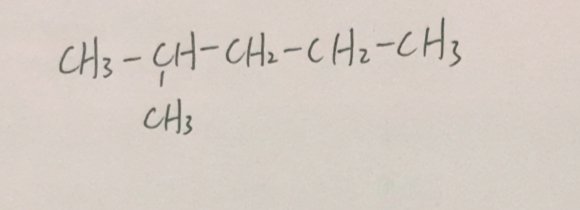 CH₃-CH-CH₂-CH₂-CH₃
CH₃